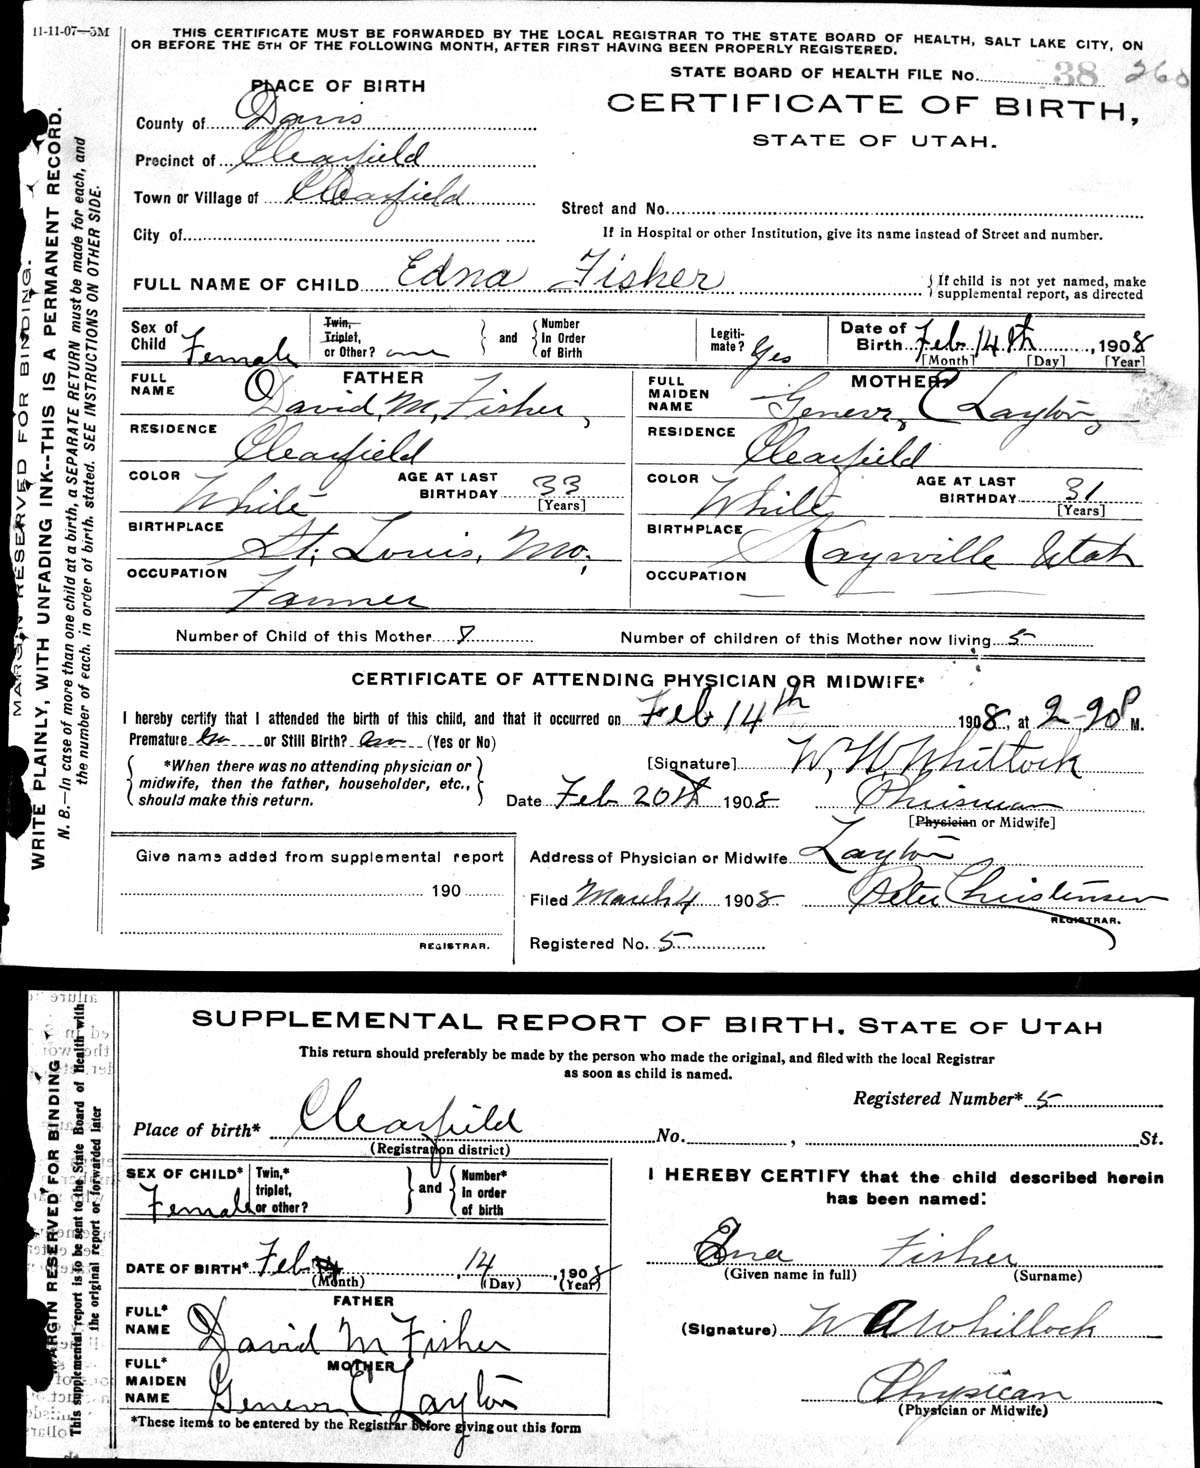 11-11-07—5M
THIS CERTIFICATE MUST BE FORWARDED BY THE LOCAL REGISTRAR TO THE STATE BOARD OF HEALTH, SALT LAKE CITY, ON
OR BEFORE THE 5TH OF THE FOLLOWING MONTH, AFTER FIRST HAVING BEEN PROPERLY REGISTERED.
STATE BOARD OF HEALTH FILE No. 38 260
PLACE OF BIRTH
CERTIFICATE OF BIRTH,
STATE OF UTAH.
County of Davis
Precinct of Clearfield
Town or Village of Clearfield
Street and No.
City of
If in Hospital or other Institution, give its name instead of Street and number.
FULL NAME OF CHILD Edna Fisher
If child is not yet named, make
supplemental report, as directed
Sex of Child Female
Twin, Triplet, or Other? one and Number In Order of Birth
Legiti-mate? Yes
Date of Birth Feb. 14th, 1908
[Month] [Day] [Year]
FATHER
FULL NAME David M. Fisher,
RESIDENCE Clearfield
COLOR White AGE AT LAST BIRTHDAY 33 [Years]
BIRTHPLACE St. Louis, Mo;
OCCUPATION Farmer
MOTHER
FULL MAIDEN NAME Layton,
RESIDENCE Clearfield
COLOR White AGE AT LAST BIRTHDAY 31 [Years]
BIRTHPLACE Kaysville Utah
OCCUPATION
Number of Child of this Mother Number of children of this Mother now living 5
CERTIFICATE OF ATTENDING PHYSICIAN OR MIDWIFE*
I hereby certify that I attended the birth of this child, and that it occurred on Feb 14th 1908, at 2-20 P M.
Premature or Still Birth? (Yes or No)
*When there was no attending physician or
midwife, then the father, householder, etc.,
should make this return.
[Signature] Whitlock
Date Feb 20th 1908
[Physician or Midwife]
Give name added from supplemental report
190
REGISTRAR.
Address of Physician or Midwife Layton
Filed March 4 1908 Peter Christensen
REGISTRAR.
Registered No. 5
MARGIN RESERVED FOR BINDING.
WRITE PLAINLY, WITH UNFADING INK--THIS IS A PERMANENT RECORD.
N. B.—In case of more than one child at a birth, a SEPARATE RETURN must be made for each, and
the number of each, in order of birth, stated. SEE INSTRUCTIONS ON OTHER SIDE.
SUPPLEMENTAL REPORT OF BIRTH, STATE OF UTAH
This return should preferably be made by the person who made the original, and filed with the local Registrar
as soon as child is named.
Registered Number* 5
Place of birth* Clearfield No. , St.
(Registration district)
SEX OF CHILD* Female
Twin,* triplet, or other? and Number* In order of birth
DATE OF BIRTH* Feb 14, 1908
(Month) (Day) (Year)
FATHER
FULL* NAME David M Fisher
MOTHER
FULL* MAIDEN NAME Layton
*These items to be entered by the Registrar before giving out this form
I HEREBY CERTIFY that the child described herein
has been named:
Fisher
(Given name in full) (Surname)
(Signature) W A Whitlock
Physican
(Physician or Midwife)
MARGIN RESERVED FOR BINDING
This supplemental report is to be sent to the State Board of Health with
the original report or forwarded later